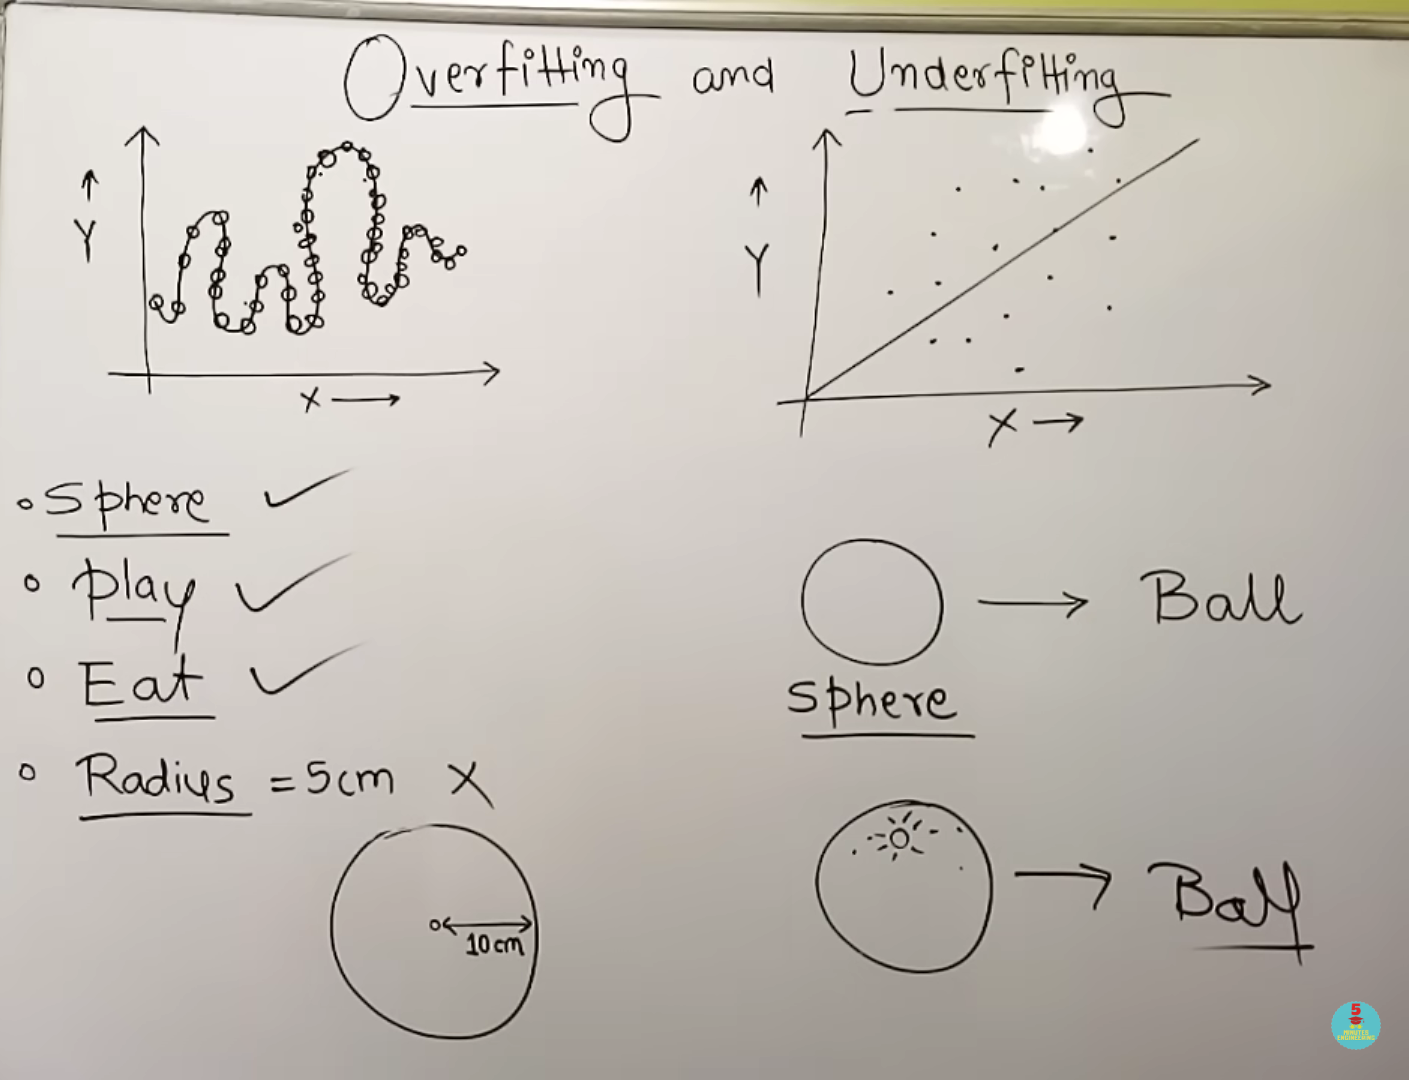 Overfitting and Underfitting
↑
Y
X →
↑
Y
X →
• Sphere ✓
• Play ✓
• Eat ✓
• Radius = 5cm X
10cm
→ Ball
Sphere
→ Ball
5
MINUTES
ENGINEERING